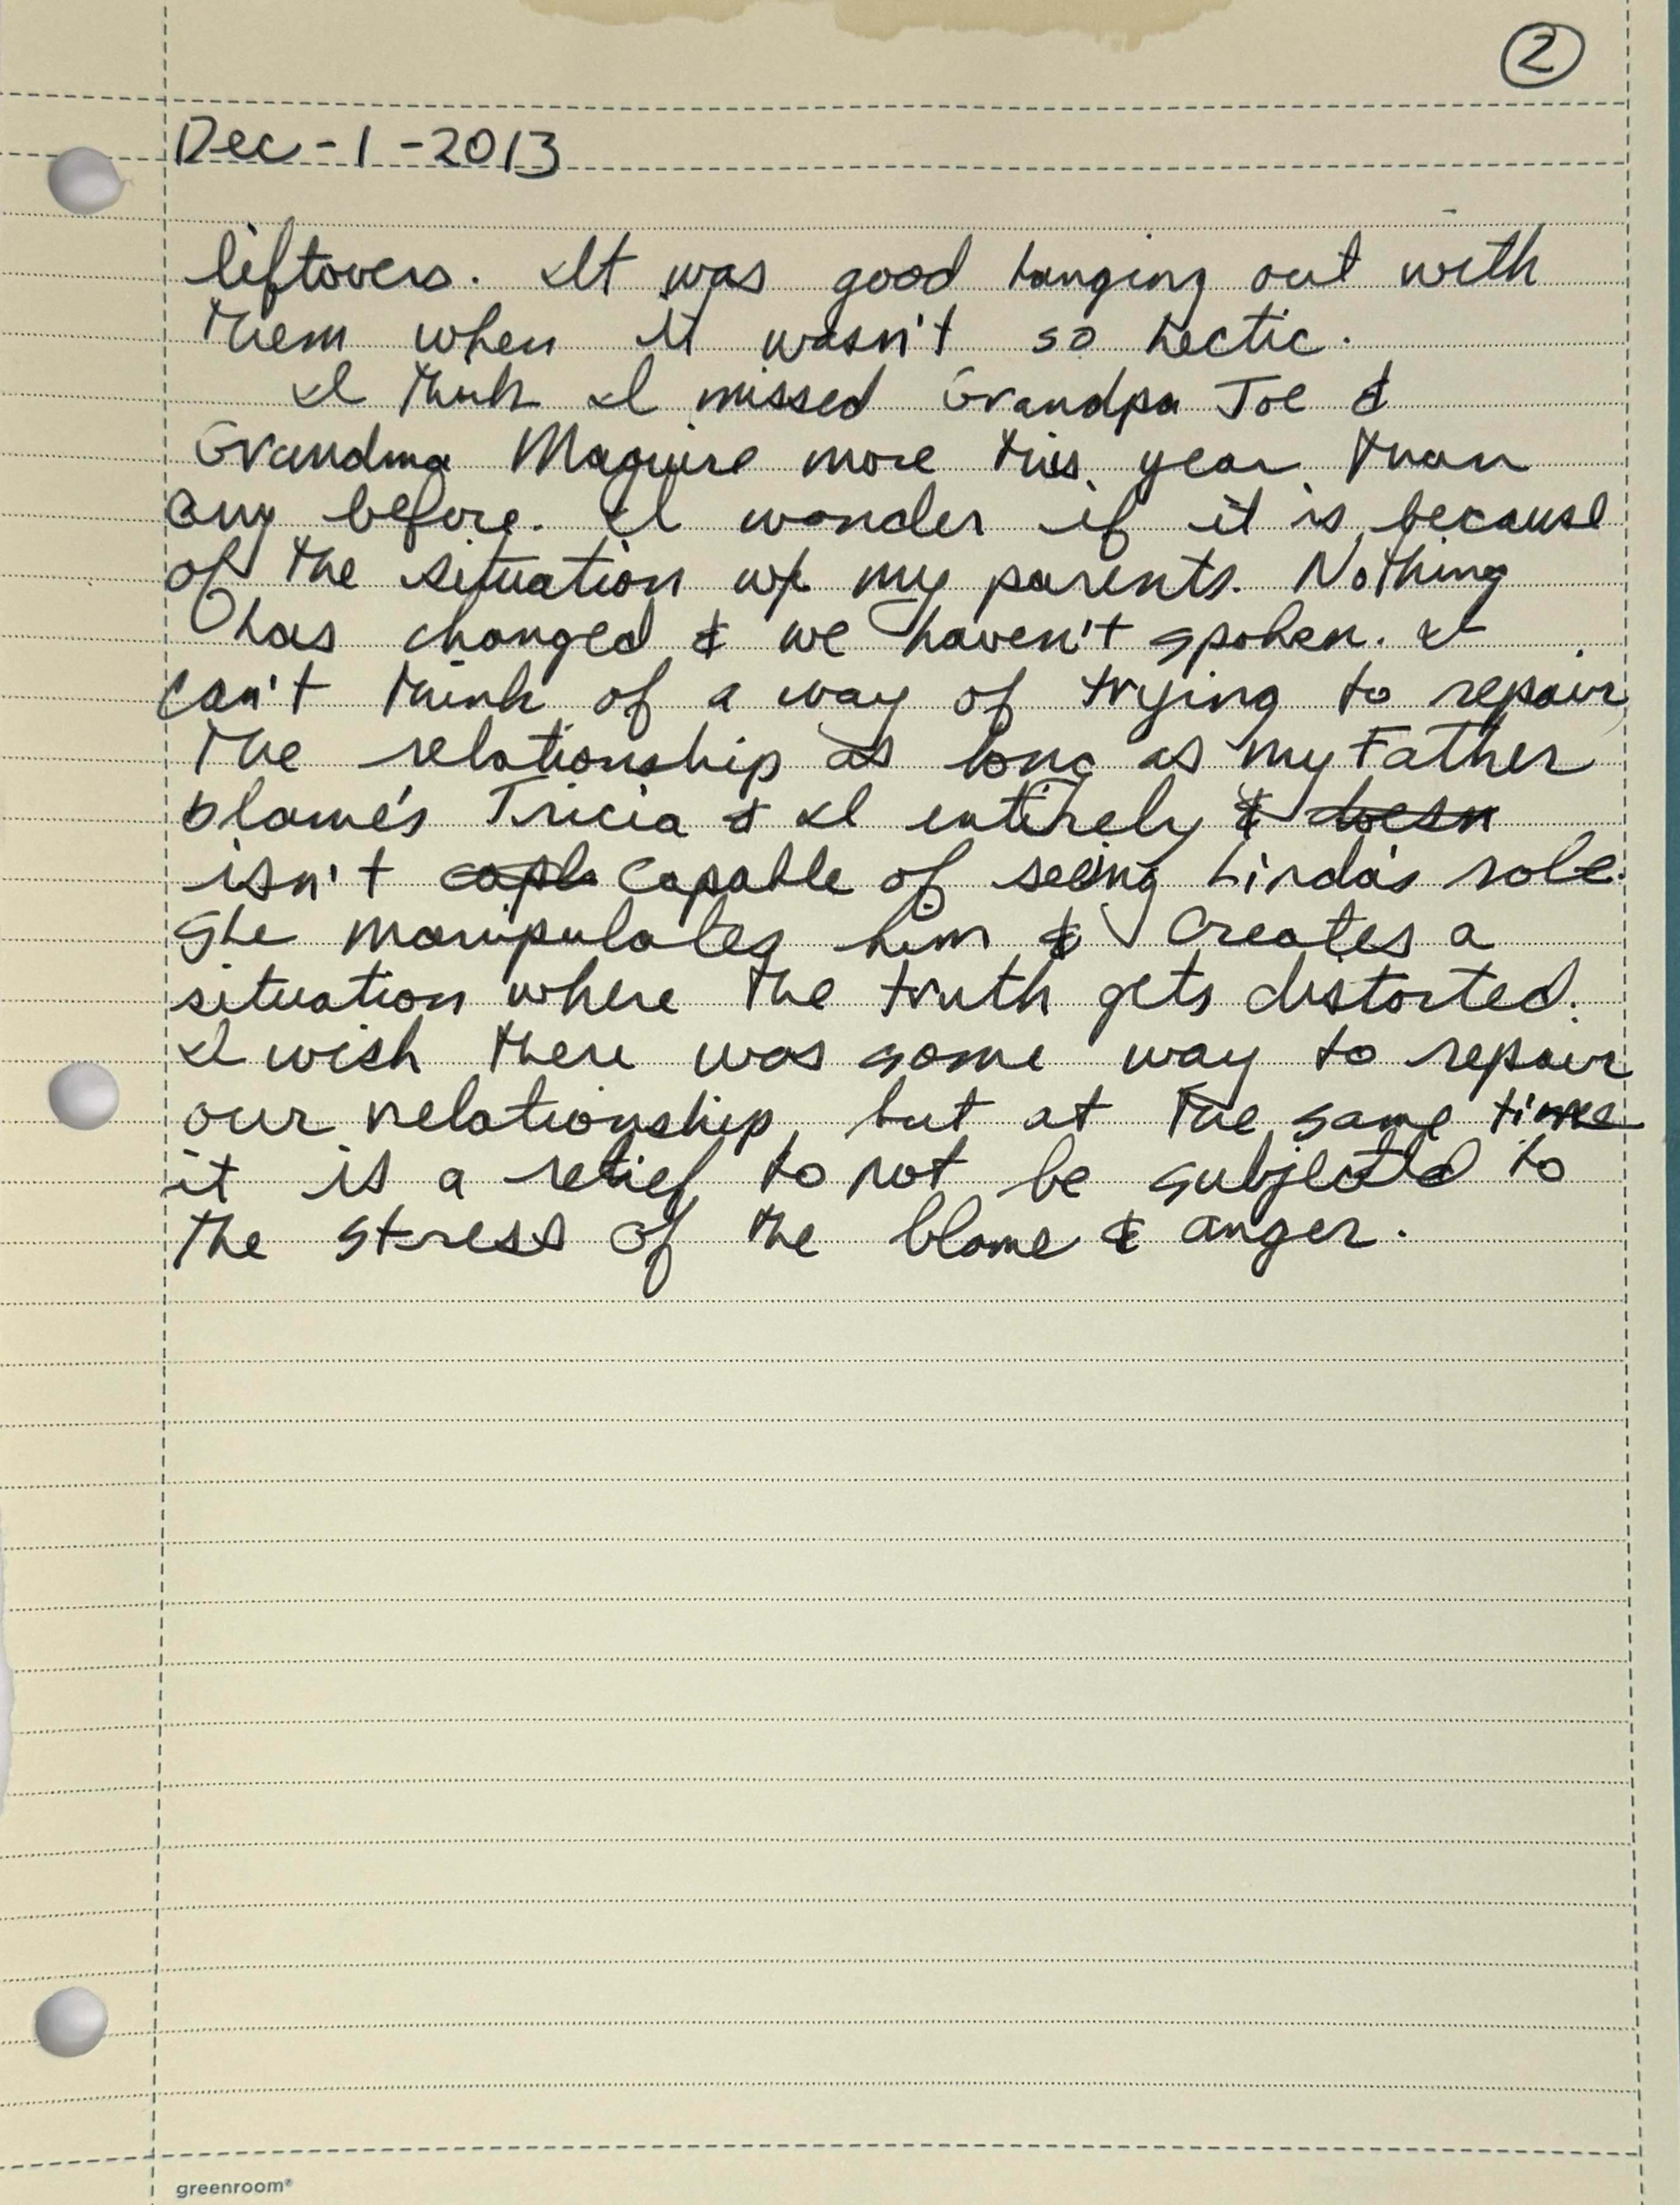 2
Dec-1-2013
leftovers. It was good hanging out with
them when it wasn't so hectic.
I think I missed Grandpa Joe &
Grandma Maguire more this year than
any before. I wonder if it is because
of the situation w/ my parents. Nothing
has changed & we haven't spoken. I
can't think of a way of trying to repair
the relationship as long as my Father
blame's Tricia & I entirely & doesn
isn't capable of seeing Linda's role.
She manipulates him & creates a
situation where the truth gets distorted.
I wish there was some way to repair
our relationship, but at the same time
it is a relief to not be subjected to
the stress of the blame & anger.
greenroom®